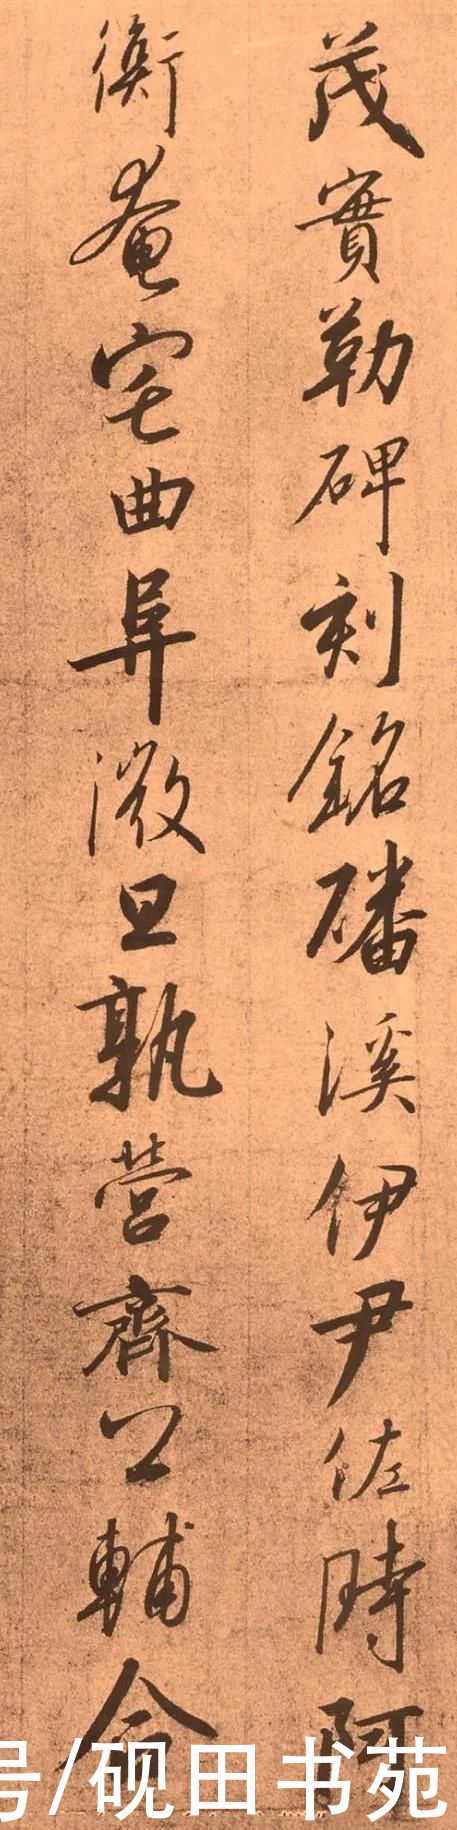 茂實勒碑刻銘磻溪伊尹佐時阿
衡奄宅曲阜微旦孰營齊公輔合
号/砚田书苑